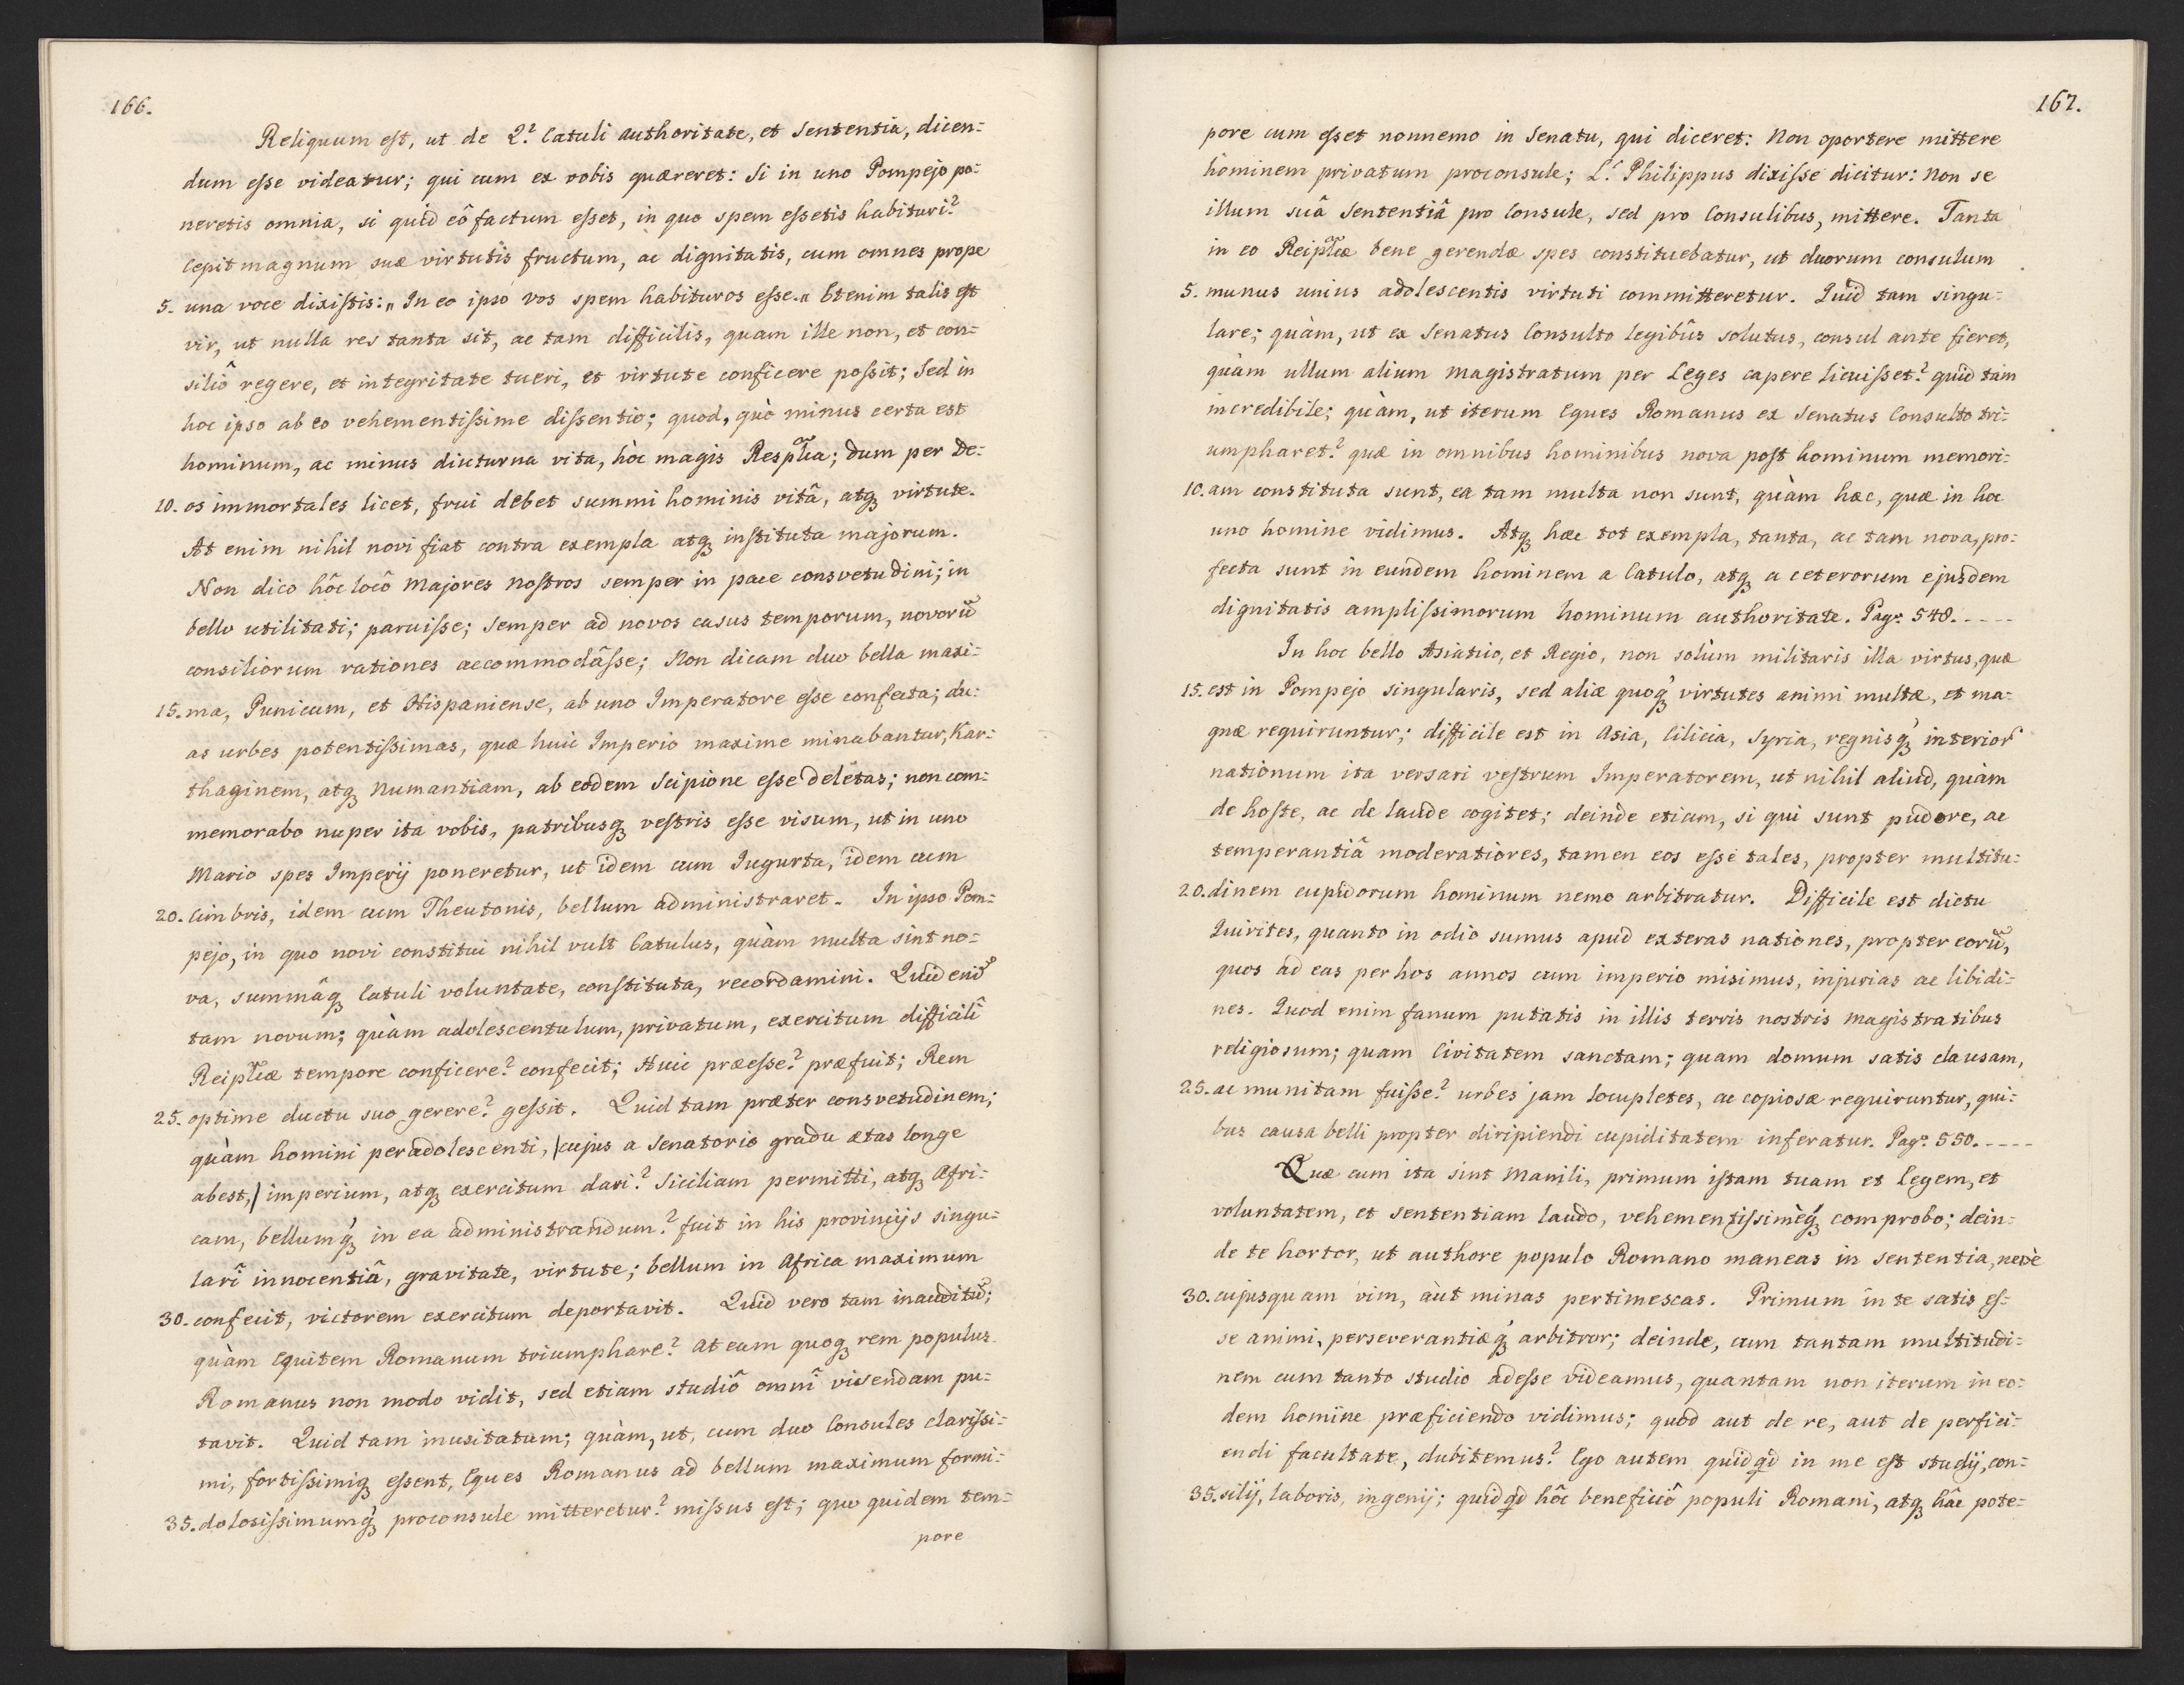 166.
Reliquum eſt, ut de Q.ͭ Catuli authoritate, et Sententia, dicen=
dum eſse videatur; qui cum ex vobis quæreret: Si in uno Pompejo po=
neretis omnia, si quid eô factum eſset, in quo spem eſsetis habituri?
Cepit magnum suæ virtutis fructum, ac dignitatis, cum omnes prope
5. una voce dixiſtis: „In eo ipso vos spem habituros eſse.„ Etenim talis eſt
vir, ut nulla res tanta sit, ac tam difficilis, quam ille non, et con=
siliô regere, et integritate tueri, et virtute conficere poſsit; Sed in
hoc ipso ab eo vehementiſsime dissentio; quod, quò minus certa est
hominum, ac minus diuturna vita, hòc magis Resplĩca; dum per De=
10. os immortales licet, frui debet summi hominis vitâ, atqꝫ virtute.
At enim nihil novi fiat contra exempla atqꝫ inſtituta majorum.
Non dico hôc locô Majores noſtros semper in pace consvetudini; in
bello utilitati; paruiſse; Semper ad novos casus temporum, novorũ
consiliorum rationes accommodâſse; Non dicam duo bella maxi=
15. ma, Punicum, et Hispaniense, ab uno Imperatore eſse confecta; du=
as urbes potentiſsimas, quæ huic Imperio maxime minabantur, Kar=
thaginem, atqꝫ Numantiam, ab eodem Scipione eſse deletas; non com=
memorabo nuper ita vobis, patribusqꝫ veſtris esse visum, ut in uno
Mario spes Imperij poneretur, ut idem cum Jugurta, idem cum
20. Cimbris, idem cum Theutonis, bellum administraret. In ipso Pom=
pejo, in quo novi constitui nihil vult Catulus, quàm multa sint no=
va, summâqꝫ Catuli voluntate, conſtituta, recordamini. Quid enĩ
tam novum; quàm adolescentulum, privatum, exercitum difficilî
Reiplĩcæ tempore conficere? confecit; Huic præeſse? præfuit; Rem
25. optime ductu suo gerere? geſsit. Quid tam præter consvetudinem;
quàm homini peradolescenti, /cujus a Senatorio gradu ætas longe
abest,/ imperium, atqꝫ exercitum dari? Siciliam permitti, atqꝫ Afri=
cam, bellumqꝫ́ in ea administrandum? fuit in his provincijs singu=
larî innocentiâ, gravitate, virtute; bellum in Africa maximum
30. confecit, victorem exercitum deportavit. Quid vero tam inauditũ;
quàm Equitem Romanum triumphare? At eam quoqꝫ rem populus
Romanus non modo vidit, sed etiam studiô omnî visendam pu=
tavit. Quid tam inusitatum; quàm, ut, cum duo Consules clariſsi=
mi, fortiſsimiqꝫ eſsent, Eques Romanus ad bellum maximum formi=
35. dolosiſsimumqꝫ́ proconsule mitteretur? miſsus eſt; quo quidem tem=
pore
167.
pore cum eſset nonnemo in Senatu, qui diceret: Non oportere mittere
hominem privatum proconsule; L.ͨ Philippus dixiſse dicitur: Non se
illum suâ Sententiâ pro Consule, sed pro Consulibus, mittere. Tanta
in eo Reiplĩcæ bene gerendæ spes constituebatur, ut duorum consulum
5. munus unius adolescentis virtuti committeretur. Quid tam singu=
lare; quàm, ut ex Senatus Consulto legibûs solutus, consul ante fieret,
quàm ullum alium magistratum per Leges capere licuiſset? quid tam
incredibile; quàm, ut iterum Eques Romanus ex Senatus Consulto tri=
umpharet? quæ in omnibus hominibus nova poſt hominum memori=
10. am constituta sunt, ea tam multa non sunt, quàm hæc, quæ in hoc
uno homine vidimus. Atqꝫ hæc tot exempla, tanta, ac tam nova, pro=
fecta sunt in eundem hominem a Catulo, atqꝫ a ceterorum ejusdem
dignitatis ampliſsimorum hominum authoritate. Pag: 548. - - - -
In hoc bello Asiatico, et Regio, non solùm militaris illa virtus, quæ
15. est in Pompejo singularis, sed aliæ quoqꝫ́ virtutes animi multæ, et ma=
gnæ requiruntur; difficile est in Asia, Cilicia, Syria, regnisqꝫ́ interior̃
nationum ita versari veſtrum Imperatorem, ut nihil aliud, quàm
de hoſte, ac de laude cogitet; deinde etiam, si qui sunt pudore, ac
temperantiâ moderatiores, tamen eos eſse tales, propter multitu=
20. dinem cupidorum hominum nemo arbitratur. Difficile est dictu
Quirites, quanto in odio sumus apud exteras nationes, propter eorũ,
quos ad eas per hos annos cum imperio misimus, injurias ac libidi=
nes. Quod enim fanum putatis in illis terris nostris magistratibus
religiosum; quam Civitatem sanctam; quam domum satis clausam,
25. ac munitam fuiſse? urbes jam locupletes, ac copiosæ requiruntur, qui=
bus causa belli propter diripiendi cupiditatem inferatur. Pag: 550. - - - -
Quæ cum ita sint Manili, primum iſtam tuam et Legem, et
voluntatem, et sententiam laudo, vehementiſsimèqꝫ́ comprobo; dein=
de te hortor, ut authore populo Romano maneas in sententia, nevè
30. cujusquam vim, aùt minas pertimescas. Primum in te satis eſ=
se animi, perseverantiæqꝫ́ arbitror; deinde, cum tantam multitudi=
nem cum tanto studio adeſse videamus, quantam non iterum in eo=
dem homine præficiendo vidimus; quòd aut de re, aut de perfici=
endi facultate, dubitemus? Ego autem quidqd in me eſt studij, con=
35. silij, laboris, ingenij; quidqd hôc beneficiô populi Romani, atqꝫ hâc pote=